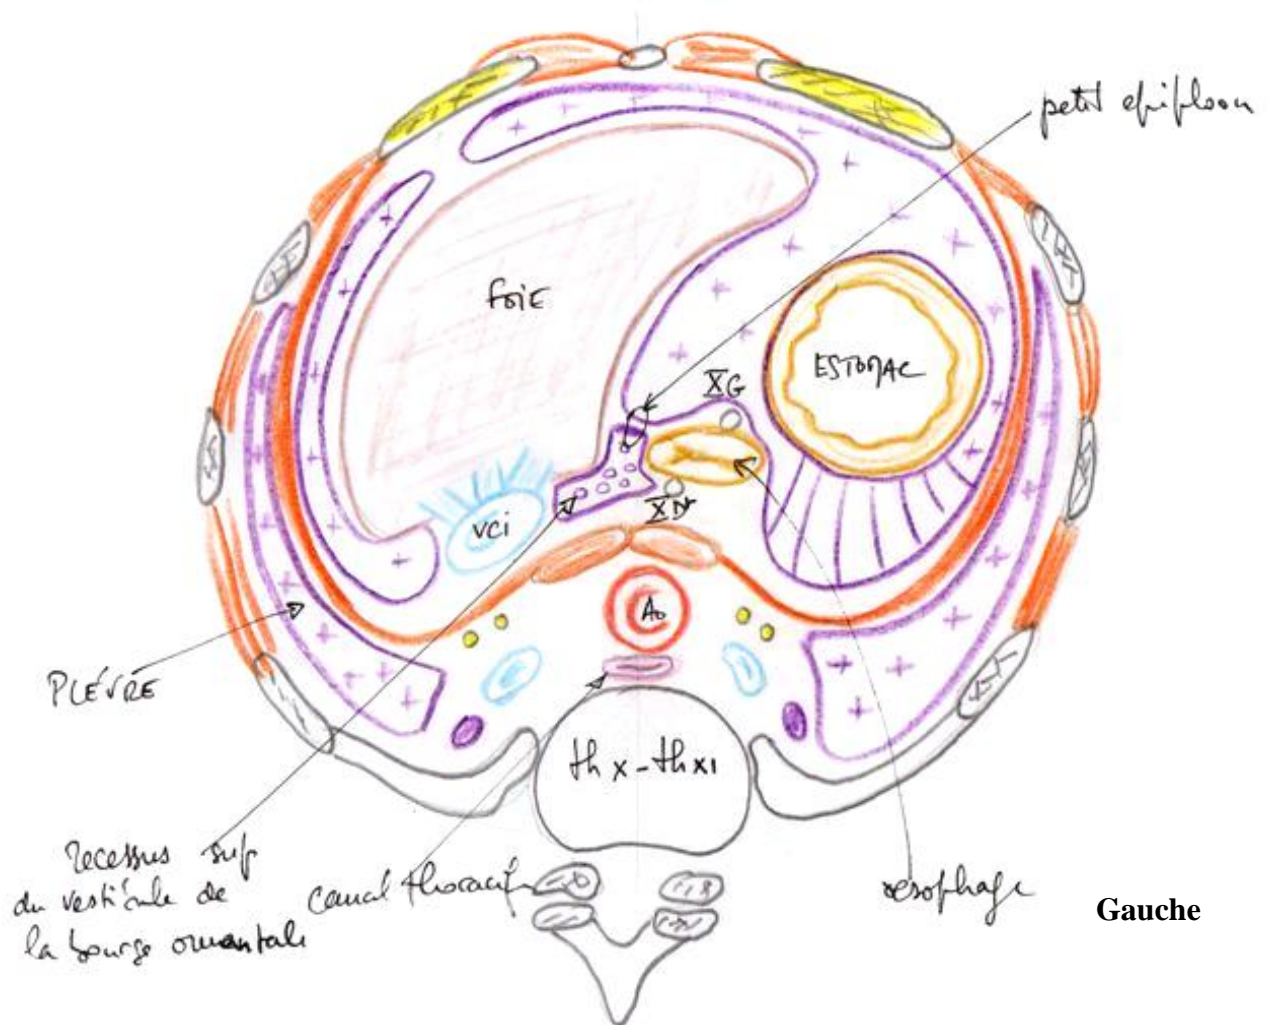 petit epiploon
FOIE
ESTOMAC
XG
XDr
VCi
Ao
PLÈVRE
th X - th XI
recessus sup
du vestibule de
la bourse omentale
canal thoracique
œsophage
Gauche